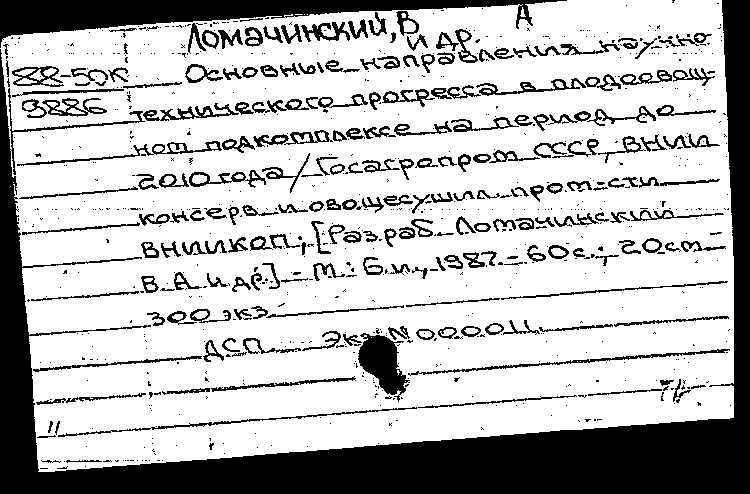 Ломачинский, В А
и др.
88-50К Основные направления научно
9886 технического прогресса в плодоовощ-
ном подкомплексе на период до
2010 года / Госагропром СССР, ВНИИ
консерв. и овощесушил. пром-сти
ВНИИКОП; [Разраб. Ломачинский
В. А. и др.] - М.: Б.и., 1987. - 60 с.; 20 см -
300 экз.
ДСП Экз N 000011.
11